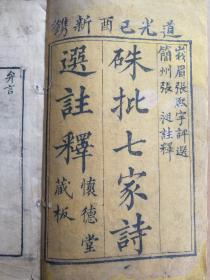 道光己酉新鐫
峩眉張熙宇評選
簡州張昶註釋
硃批七家詩
選註釋
懷德堂
藏板
弁言